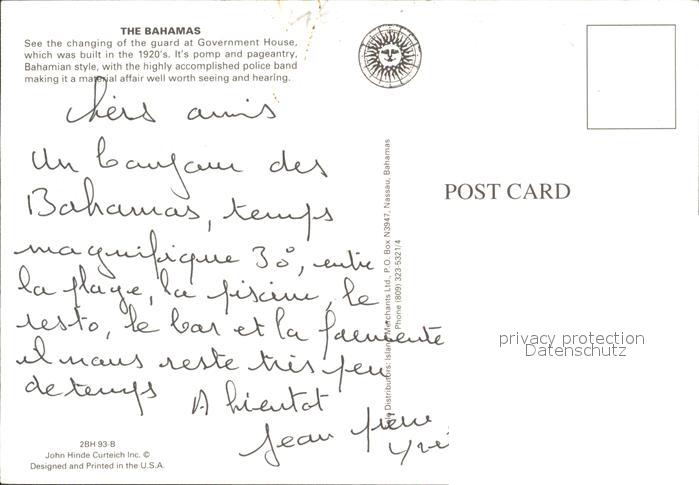 THE BAHAMAS
See the changing of the guard at Government House,
which was built in the 1920's. It's pomp and pageantry,
Bahamian style, with the highly accomplished police band
making it a material affair well worth seeing and hearing.
chers amis
Un bonjour des
Bahamas, temps
magnifique 30°, entre
la plage, la piscine, le
resto, le bar et la
il nous reste très peu
de temps
A bientot
Jean Pierre
2BH 93-B
John Hinde Curteich Inc. ©
Designed and Printed in the U.S.A.
Distributors: Island Merchants Ltd., P.O. Box N3947, Nassau, Bahamas
Phone (809) 323-5321/4
POST CARD
privacy protection
Datenschutz